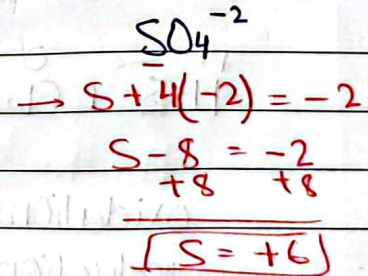 SO₄⁻²
→ S + 4(-2) = -2
S - 8 = -2
+8 +8
S = +6